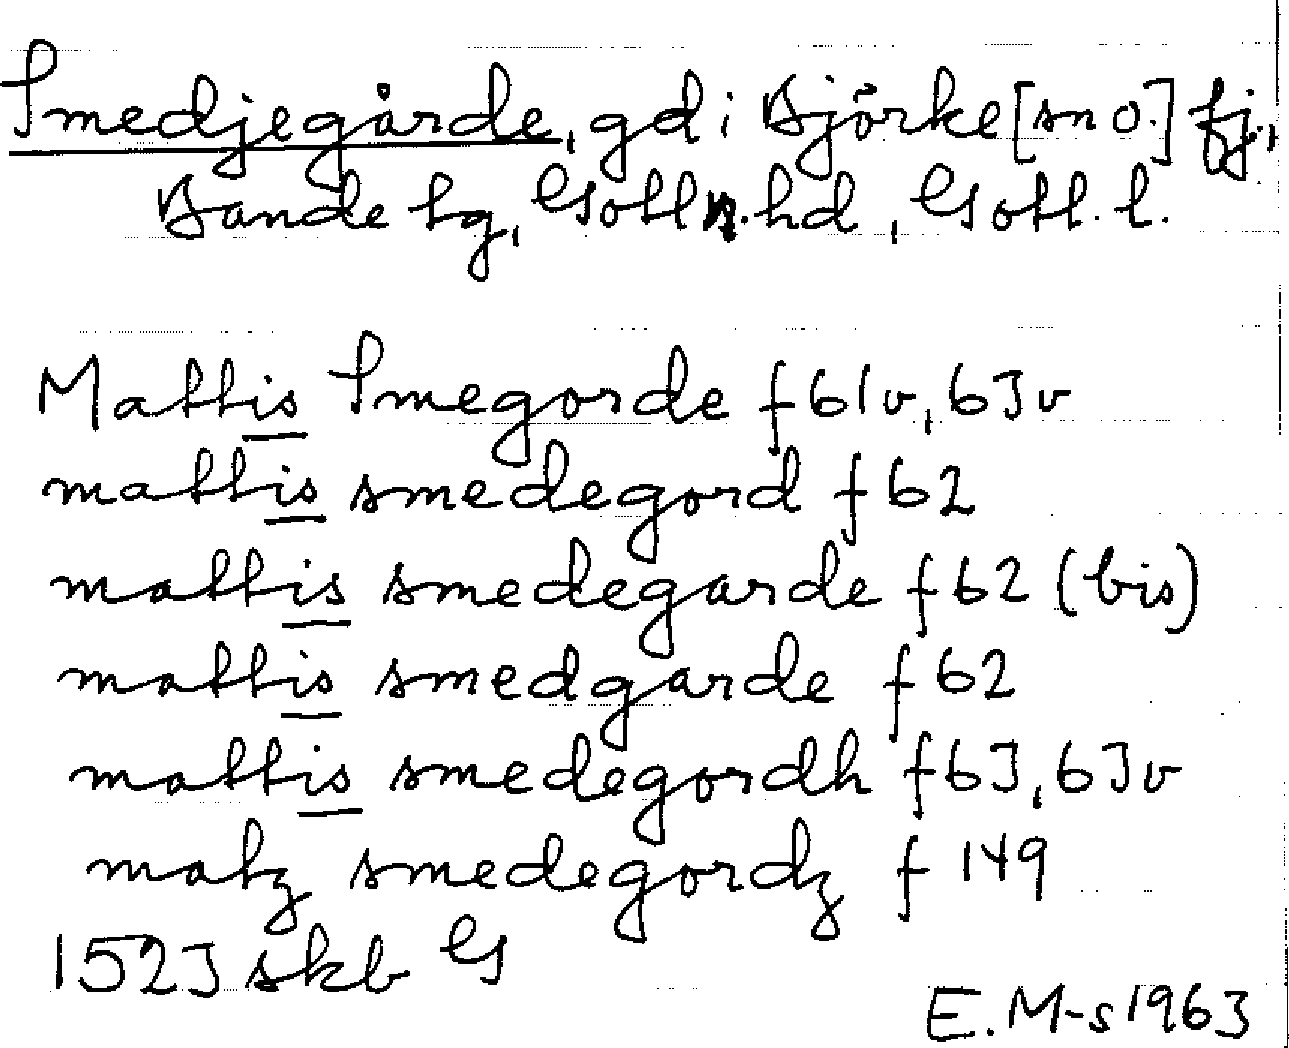 Smedjegårde, gd i Björke [sn o.] fj.,
Bande tg, Gotl n. hd, Gotl. l.
Mattis Smegorde f 61v, 63v
mattis smedegord f 62
mattis smedegarde f 62 (bis)
mattis smedgarde f 62
mattis smedegordh f 63, 63v
matz smedegordz f 149
1523 skb G
E. M-s 1963